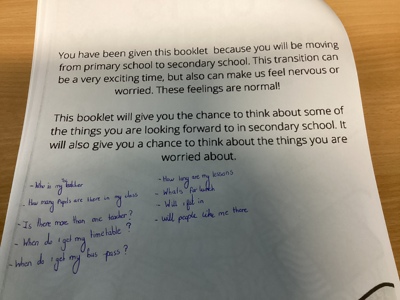 You have been given this booklet because you will be moving
from primary school to secondary school. This transition can
be a very exciting time, but also can make us feel nervous or
worried. These feelings are normal!
This booklet will give you the chance to think about some of
the things you are looking forward to in secondary school. It
will also give you a chance to think about the things you are
worried about.
- Who is my teacher
- How many pupils are there in my class
- Is there more than one teacher?
- When do I get my timetable?
- When do I get my bus pass?
- How long are my lessons
- Whats for lunch
- Will I fit in
- Will people like me there